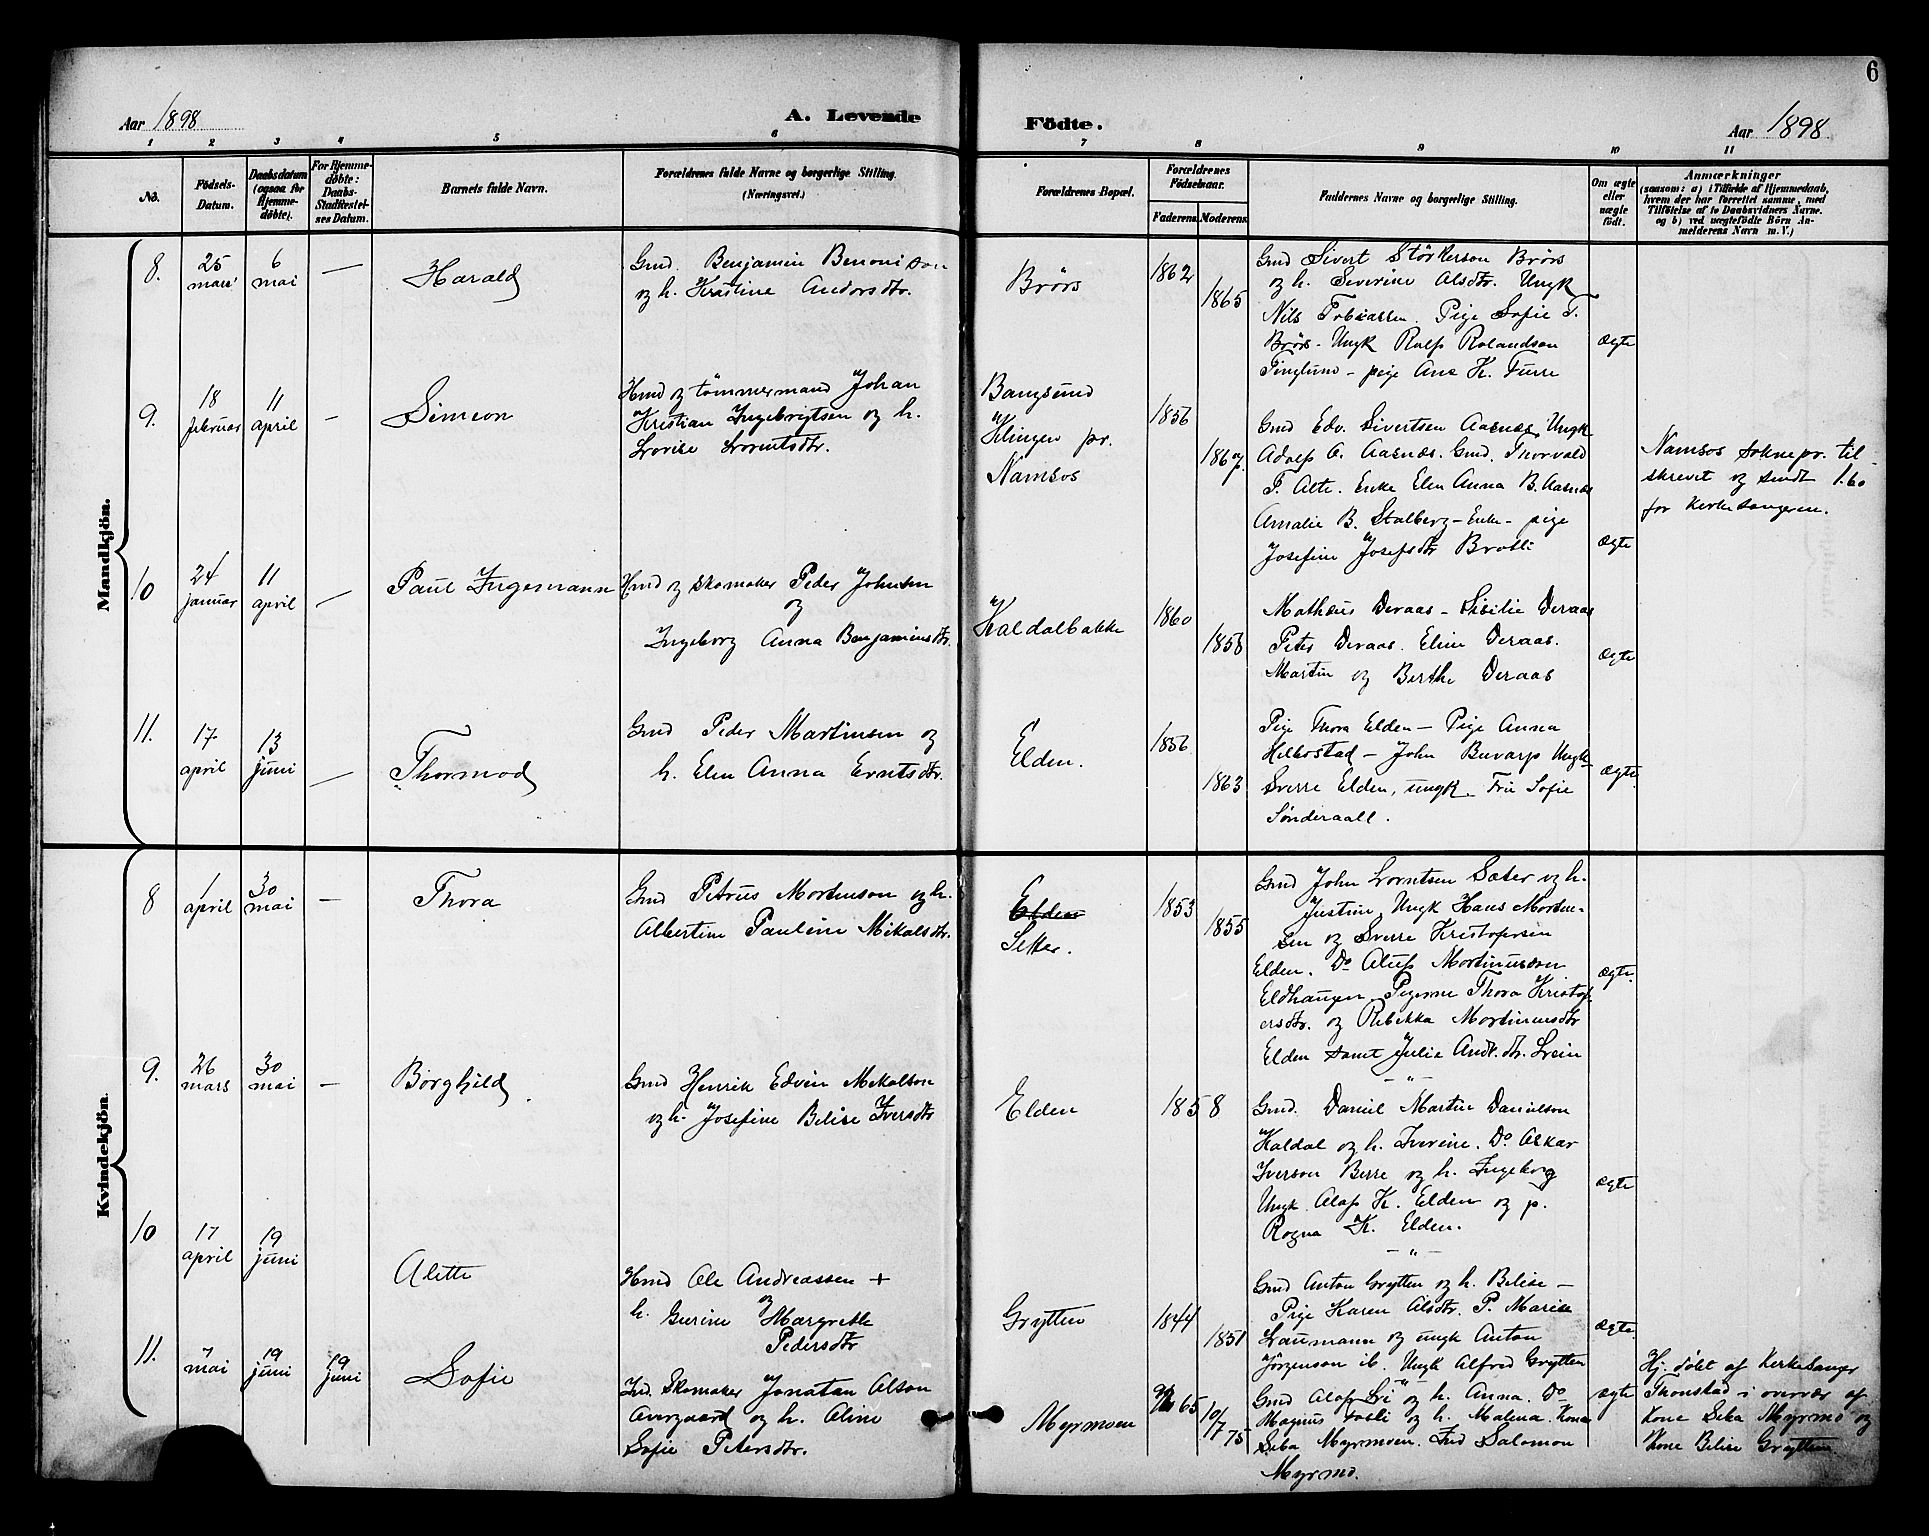 6
Aar 1898
A. Levende
Födte.
Aar 1898
1 2 3 4 5 6 7 8 9 10 11
No.
Födsels-
Datum.
Daabsdatum
(ogsaa for
Hjemme-
döbte).
For Hjemme-
döbte:
Daabs-
Stadfæstel-
ses Datum.
Barnets fulde Navn.
Forældrenes fulde Navne og borgerlige Stilling.
(Næringsvei.)
Forældrenes Bopæl.
Forældrenes
Födselsaar.
Faderens. Moderens.
Faddernes Navne og borgerlige Stilling.
Om ægte
eller
uægte
födt.
Anmærkninger
(saasom: a) i Tilfælde af Hjemmedaab,
hvem der har forrettet samme, med
Tilföielse af to Daabsvidners Navne.
og b) ved uægtefödte Börn An-
melderens Navn m. V.)
Mandkjön.
8.
25
mars
6
mai
—
Harald
Gmd. Benjamin Benoni son
og h. Kristine Andorsdtr.
Brörs
1862
1865
Gmd Sivert Störkerson Brörs
og h. Severine Alsdtr. Ungk
Nils Tobiassen. Pige Sofie T.
Brörs - Ungk Rolf Rolandson
Tinglund - pige Ane K. Furre
ægte
9.
18
februar
11
april
—
Simeon
Hmd og tömmermand Johan
Kristian Ingebrigtsen og h.
Lovise Lorentsdtr.
Bangsund
Klingen pr.
Namsos
1856
Gmd Edv. Sivertsen Aasnes, Ungk
Adolf O. Aasnes. Gmd. Thorvald
P. Alte. Enke Elen Anna B. Aasnes
Amalie B. Stalberg - Enke - pige
Josefine Josefsdtr Bratli
ægte
Namsos sokne pr. til
skrevet og sendt 1.60
for Kirkesangeren.
10
24
januar
11
april
—
Paul Ingemann
Hmd og Skomaker Peder Johnsen
og
Ingeborg Anna Benjaminsdtr.
Kaldalbakke
1860
1858
Mathæus Deraas - Sisilie Deraas
Peter Deraas. Eline Deraas.
Martin og Berthe Deraas
ægte
11.
17
april
13
juni
—
Thormod
Gmd Peder Martinsen og
h. Elen Anna Erntsdtr.
Elden.
1856
1863
Pige Thora Elden - Pige Anna
Helbostad - John Buvarp Ungk
Sverre Elden, ungk. Fru Sofie
Sönderaall.
ægte
Kvindekjön.
8
1
april
30
mai
—
Thora
Gmd Petrus Mortenson og h.
Albertine Pauline Mikalsdtr.
Elden
Setter.
1853
1855
Gmd John Lorntsen Sæter og h.
Justine, Ungk Hans Morten-
sen og Sverre Kristofersen
Elden. Do Aluf Mortinusson
Eldhaugen. Pigerne Thora Kristof-
ersdtr. og Rebekka Mortinusdtr
Elden samt Julie Andr. dtr. Lsein
ægte
9.
26
mars
30
mai
—
Borghild
Gmd Henrik Edvin Mikalson
og h. Josefine Belise Iversdtr
Elden
1858
— " —
Gmd. Daniel Martin Danielson
Kaldal og h. Iverine. Do Oskar
Iverson Berre og h. Ingeborg
Ungk Olaf K. Elden og p.
Rogna K. Elden.
ægte
10
17
april
19
juni
Alette
Hmd Ole Andreassen +
og
h. Gurine Margrethe
Pedersdtr
Grytten
1844
1851
— " —
Gmd Anton Grytten og h. Belise -
Pige Karen Alsdtr. P. Marise
Laumann og ungk Anton
Jörgenson ib. Ungk Alfred Grytten
ægte
11.
7
mai
19
juni
19
juni
Sofie
Ind. Skomaker Jonatan Olson
Overgaard og h. Aline
Sofie Petersdtr.
Myrmoen
65
10/7 75
Gmd Olaf Lri og h. Anna. Do
Magnus og h. Malena. Kone
Seba Myrmoen. Ind Salomon
Myrmo.
ægte
Hj. döbt af Kirkesanger
Thonstad i overvær af
Kone Seba Myrmo og
Kone Belise Grytten